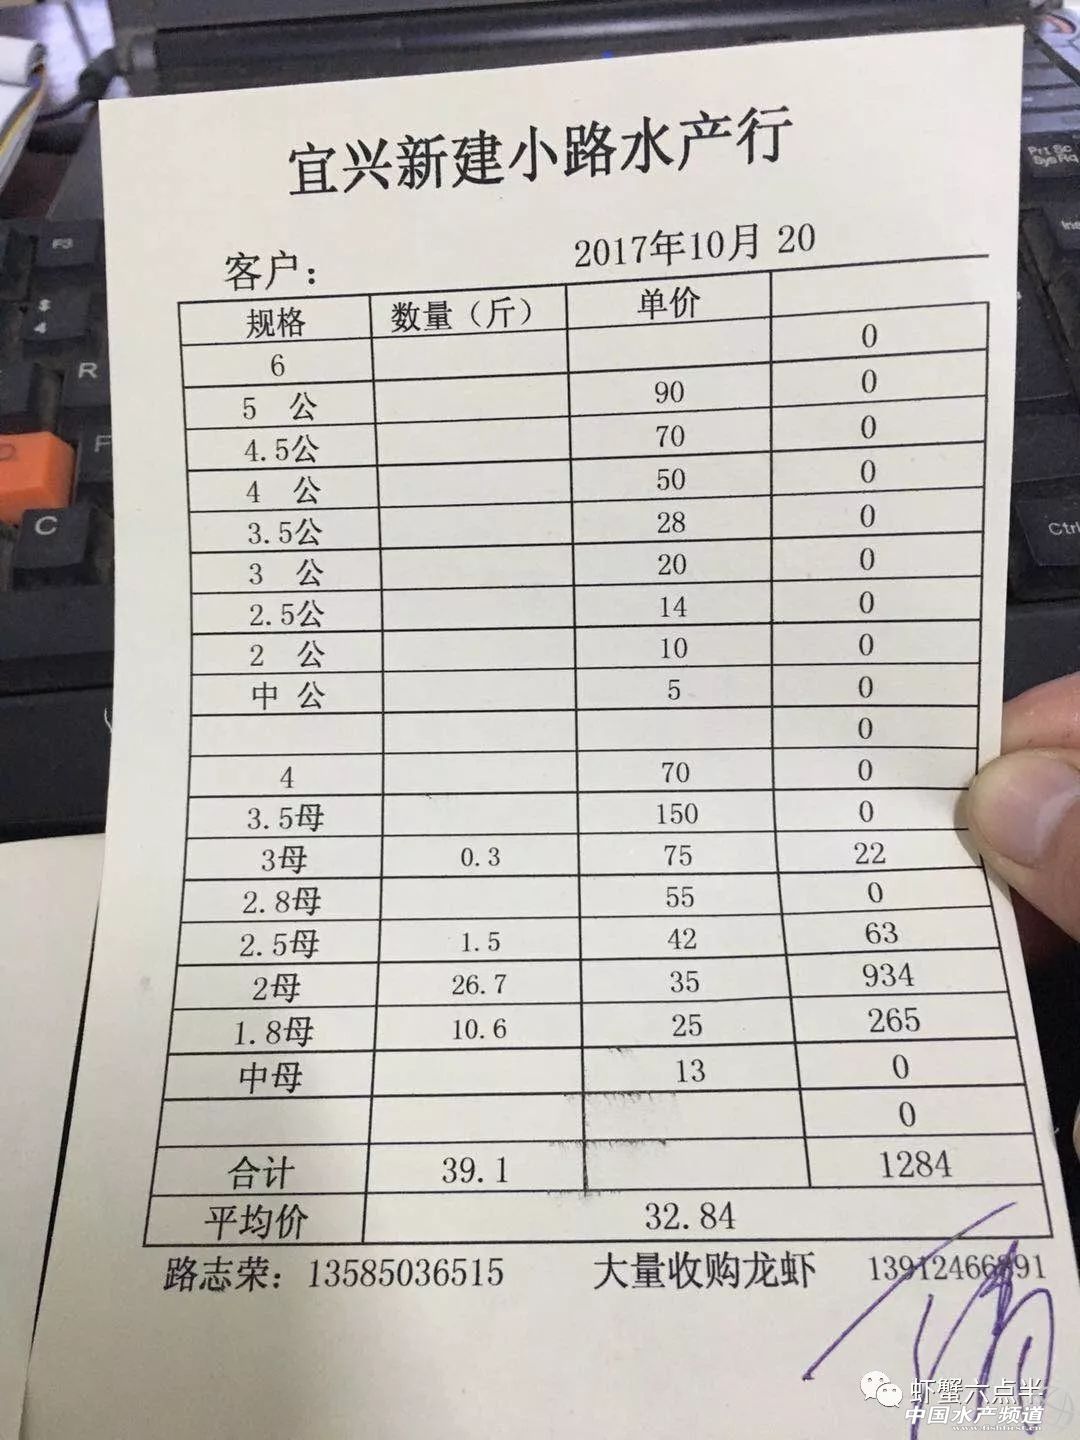 宜兴新建小路水产行
客户： 2017年10月 20
规格 数量（斤） 单价
6 0
5 公 90 0
4.5公 70 0
4 公 50 0
3.5公 28 0
3 公 20 0
2.5公 14 0
2 公 10 0
中 公 5 0
0
4 70 0
3.5母 150 0
3母 0.3 75 22
2.8母 55 0
2.5母 1.5 42 63
2母 26.7 35 934
1.8母 10.6 25 265
中母 13 0
0
合计 39.1 1284
平均价 32.84
路志荣：13585036515 大量收购龙虾 13912466891
虾蟹六点半
中国水产频道
F3
$
4
R
F
C
Prt Sc
SysRq
Ins
Ctrl